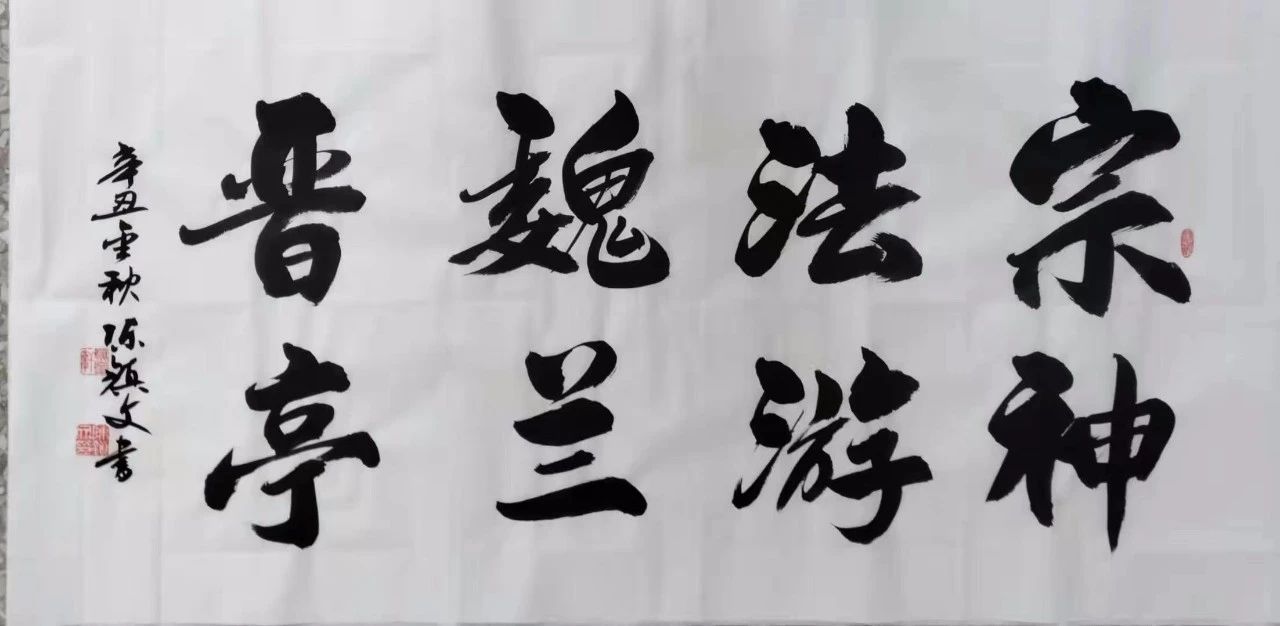 宗法魏晋
神游兰亭
辛丑金秋陈镇文书